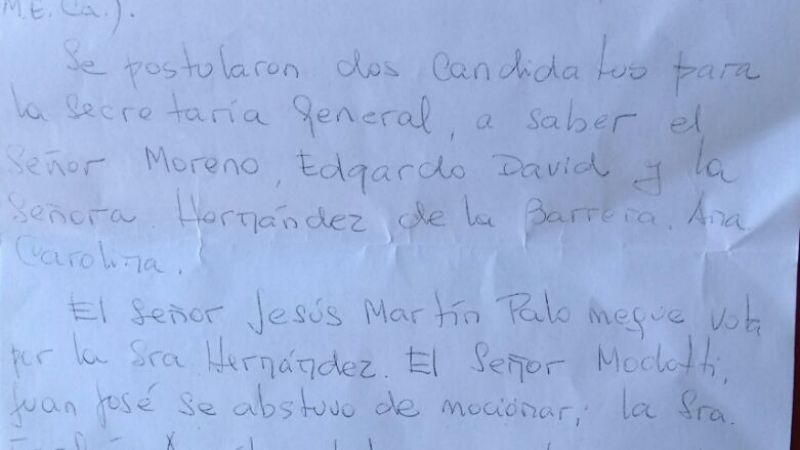 M.E. Ca.).
Se postularon dos Candidatos para
la Secretaría General, a saber el
Señor Moreno, Edgardo David y la
Señora Hernández de la Barrera, Ana
Carolina.
El Señor Jesús Martín Palo meque vota
por la Sra Hernández. El Señor Modotti,
Juan José se abstuvo de mocionar; la Sra.